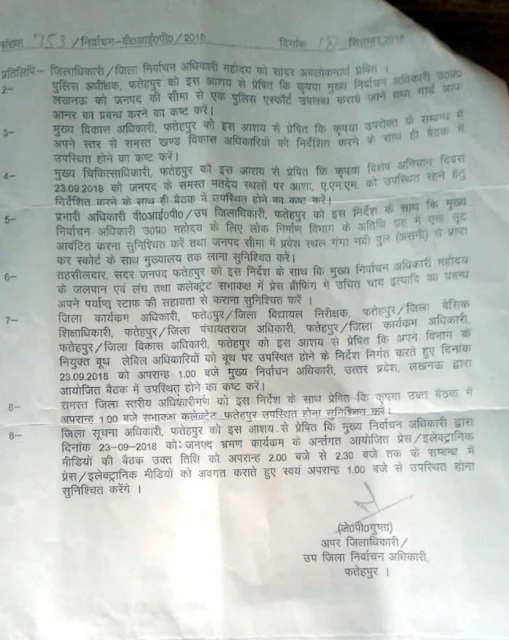 संख्या 753 /निर्वाचन-वी०आई०पी० /2018 दिनांक 18 सितम्बर,2018
प्रतिलिपि- जिलाधिकारी/जिला निर्वाचन अधिकारी महोदय को सादर अवलोकनार्थ प्रेषित ।
2- पुलिस अधीक्षक, फतेहपुर को इस आशय से प्रेषित कि कृपया मुख्य निर्वाचन अधिकारी उ०प्र०
लखनऊ को जनपद की सीमा से एक पुलिस एस्कोर्ट उपलब्ध कराये जाने तथा गार्ड आफ
आनर का प्रबन्ध करने का कष्ट करें।
3- मुख्य विकास अधिकारी, फतेहपुर को इस आशय से प्रेषित कि कृपया उपरोक्त के सम्बन्ध में
अपने स्तर से समस्त खण्ड विकास अधिकारियों को निर्देशित करने के साथ ही बैठक में
उपस्थित होने का कष्ट करें।
4- मुख्य चिकित्साधिकारी, फतेहपुर को इस आशय से प्रेषित कि कृपया विशेष अभियान दिवस
23.09.2018 को जनपद के समस्त मतदेय स्थलों पर आशा, ए.एन.एम. को उपस्थित रहने हेतु
निर्देशित करने के साथ ही बैठक में उपस्थित होने का कष्ट करें।
5- प्रभारी अधिकारी वी०आई०पी०/उप जिलाधिकारी, फतेहपुर को इस निर्देश के साथ कि मुख्य
निर्वाचन अधिकारी उ०प्र० महोदय के लिए लोक निर्माण विभाग के अतिथि गृह में एक सूट
आवंटित कराना सुनिश्चित करें तथा जनपद सीमा में प्रवेश स्थल गंगा नदी पुल (असनी) से प्राप्त
कर स्कोर्ट के साथ मुख्यालय तक लाना सुनिश्चित करें।
6- तहसीलदार, सदर जनपद फतेहपुर को इस निर्देश के साथ कि मुख्य निर्वाचन अधिकारी महोदय
के जलपान एवं लंच तथा कलेक्ट्रेट सभाकक्ष में प्रेस ब्रीफिंग में उचित चाय इत्यादि का प्रबन्ध
अपने पर्याप्त स्टाफ की सहायता से कराना सुनिश्चित करें ।
7- जिला कार्यक्रम अधिकारी, फतेहपुर/जिला विद्यालय निरीक्षक, फतेहपुर/जिला बेसिक
शिक्षाधिकारी, फतेहपुर/जिला पंचायतराज अधिकारी, फतेहपुर/जिला कार्यक्रम अधिकारी,
फतेहपुर/जिला विकास अधिकारी, फतेहपुर को इस आशय से प्रेषित कि अपने विभाग के
नियुक्त बूथ लेविल अधिकारियों को बूथ पर उपस्थित होने के निर्देश निर्गत करते हुए दिनांक
23.09.2018 को अपरान्ह 1.00 बजे मुख्य निर्वाचन अधिकारी, उत्तर प्रदेश, लखनऊ द्वारा
आयोजित बैठक में उपस्थित होने का कष्ट करें।
8- समस्त जिला स्तरीय अधिकारीगण को इस निर्देश के साथ प्रेषित कि कृपया उक्त बैठक में
अपरान्ह 1.00 बजे सभाकक्ष कलेक्ट्रेट, फतेहपुर उपस्थित होना सुनिश्चित करें।
8- जिला सूचना अधिकारी, फतेहपुर को इस आशय से प्रेषित कि मुख्य निर्वाचन अधिकारी द्वारा
दिनांक 23-09-2018 को जनपद भ्रमण कार्यक्रम के अर्न्तगत आयोजित प्रेस/इलेक्ट्रानिक
मीडियों की बैठक उक्त तिथि को अपरान्ह 2.00 बजे से 2.30 बजे तक के सम्बन्ध में
प्रेस/इलेक्ट्रानिक मीडियों को अवगत कराते हुए स्वयं अपरान्ह 1.00 बजे से उपस्थित होना
सुनिश्चित करेंगे ।
(जे०पी०गुप्ता)
अपर जिलाधिकारी/
उप जिला निर्वाचन अधिकारी,
फतेहपुर ।